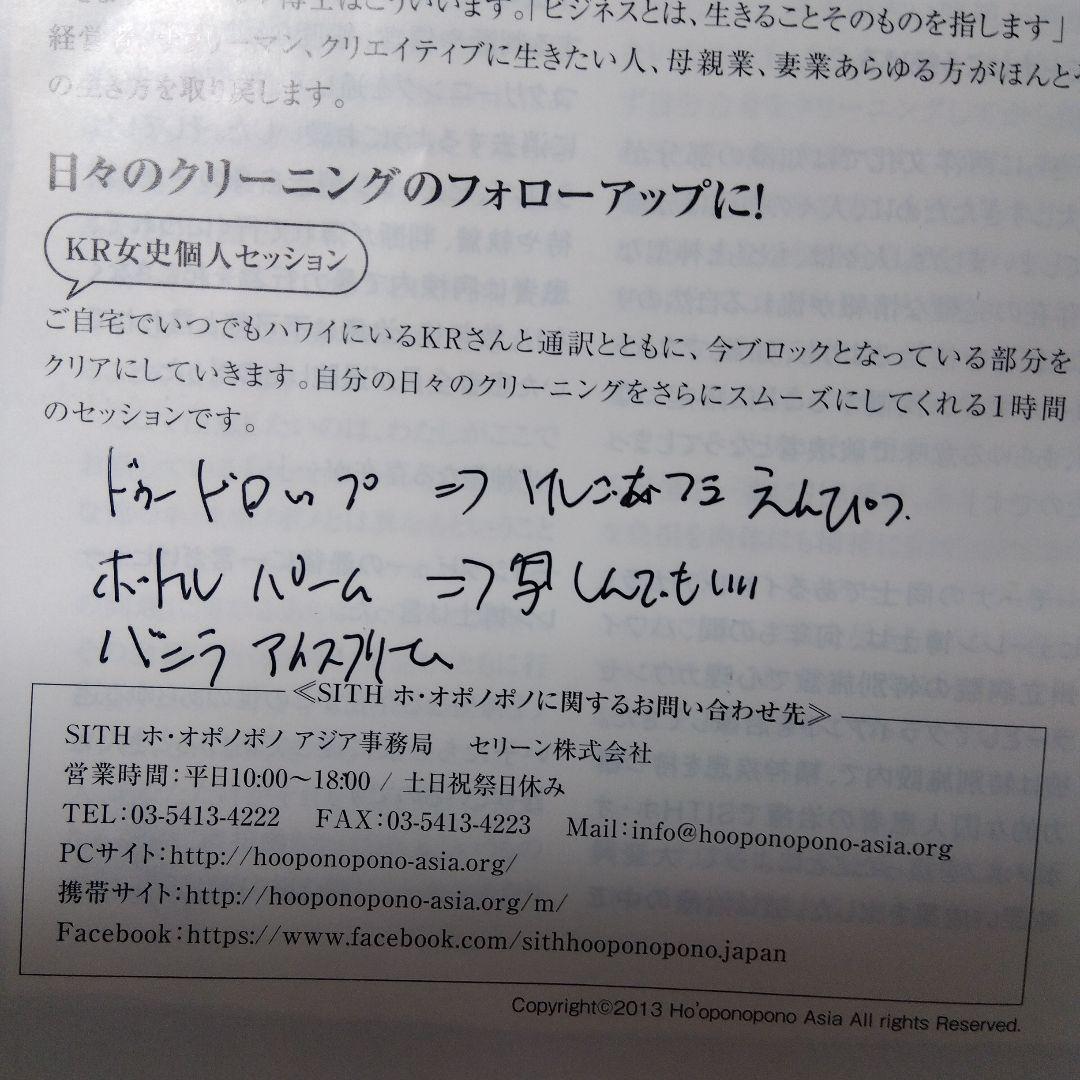 博士はこういいます。「ビジネスとは、生きることそのものを指します」
リーマン、クリエイティブに生きたい人、母親業、妻業あらゆる方がほんと
の生き方を取り戻します。
日々のクリーニングのフォローアップに!
KR女史個人セッション
ご自宅でいつでもハワイにいるKRさんと通訳とともに、今ブロックとなっている部分を
クリアにしていきます。自分の日々のクリーニングをさらにスムーズにしてくれる1時間
のセッションです。
ドゥードロップ ⇒ けしごむつき えんぴつ
ボトル パーム ⇒ 写しんでもいい
バニラ アイスクリーム
≪SITH ホ・オポノポノに関するお問い合わせ先≫
SITH ホ・オポノポノ アジア事務局 セリーン株式会社
営業時間:平日10:00〜18:00 / 土日祝祭日休み
TEL:03-5413-4222 FAX:03-5413-4223 Mail:info@hooponopono-asia.org
PCサイト:http://hooponopono-asia.org/
携帯サイト:http://hooponopono-asia.org/m/
Facebook:https://www.facebook.com/sithhooponopono.japan
Copyright©2013 Ho'oponopono Asia All rights Reserved.